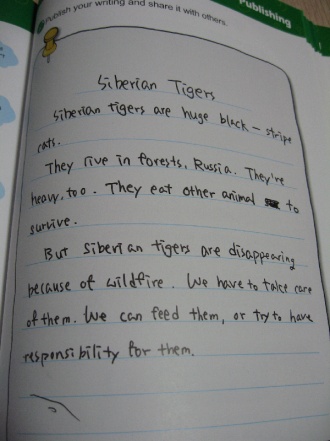 Publish your writing and share it with others.
Publishing
Siberian Tigers
Siberian tigers are huge black - stripe
cats.
They live in forests, Russia. They're
heavy, too. They eat other animal to
survive.
But siberian tigers are disappearing
because of wildfire. We have to take care
of them. We can feed them, or try to have
responsibility for them.